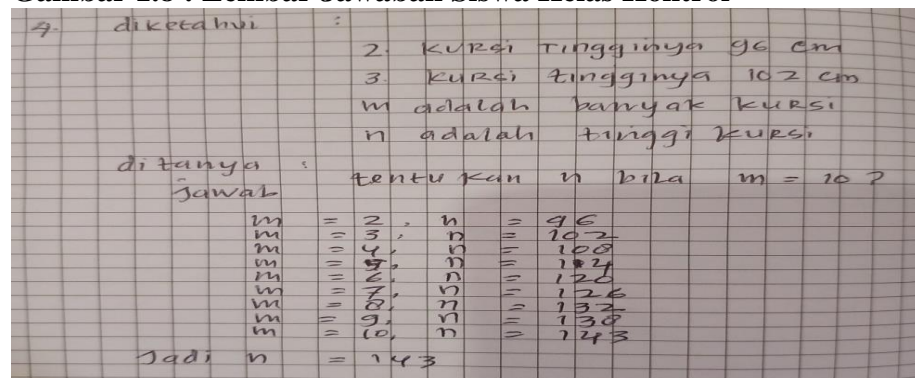 Gambar 4.8 : Lembar Jawaban Siswa Kelas Kontrol
4. diketahui :
2. kursi Tingginya 96 cm
3. kursi tingginya 102 cm
m adalah banyak kursi
n adalah tinggi kursi
ditanya :
tentukan n bila m = 10 ?
Jawab
m = 2, n = 96
m = 3, n = 102
m = 4, n = 108
m = 5, n = 114
m = 6, n = 120
m = 7, n = 126
m = 8, n = 132
m = 9, n = 138
m = 10, n = 143
Jadi n = 143